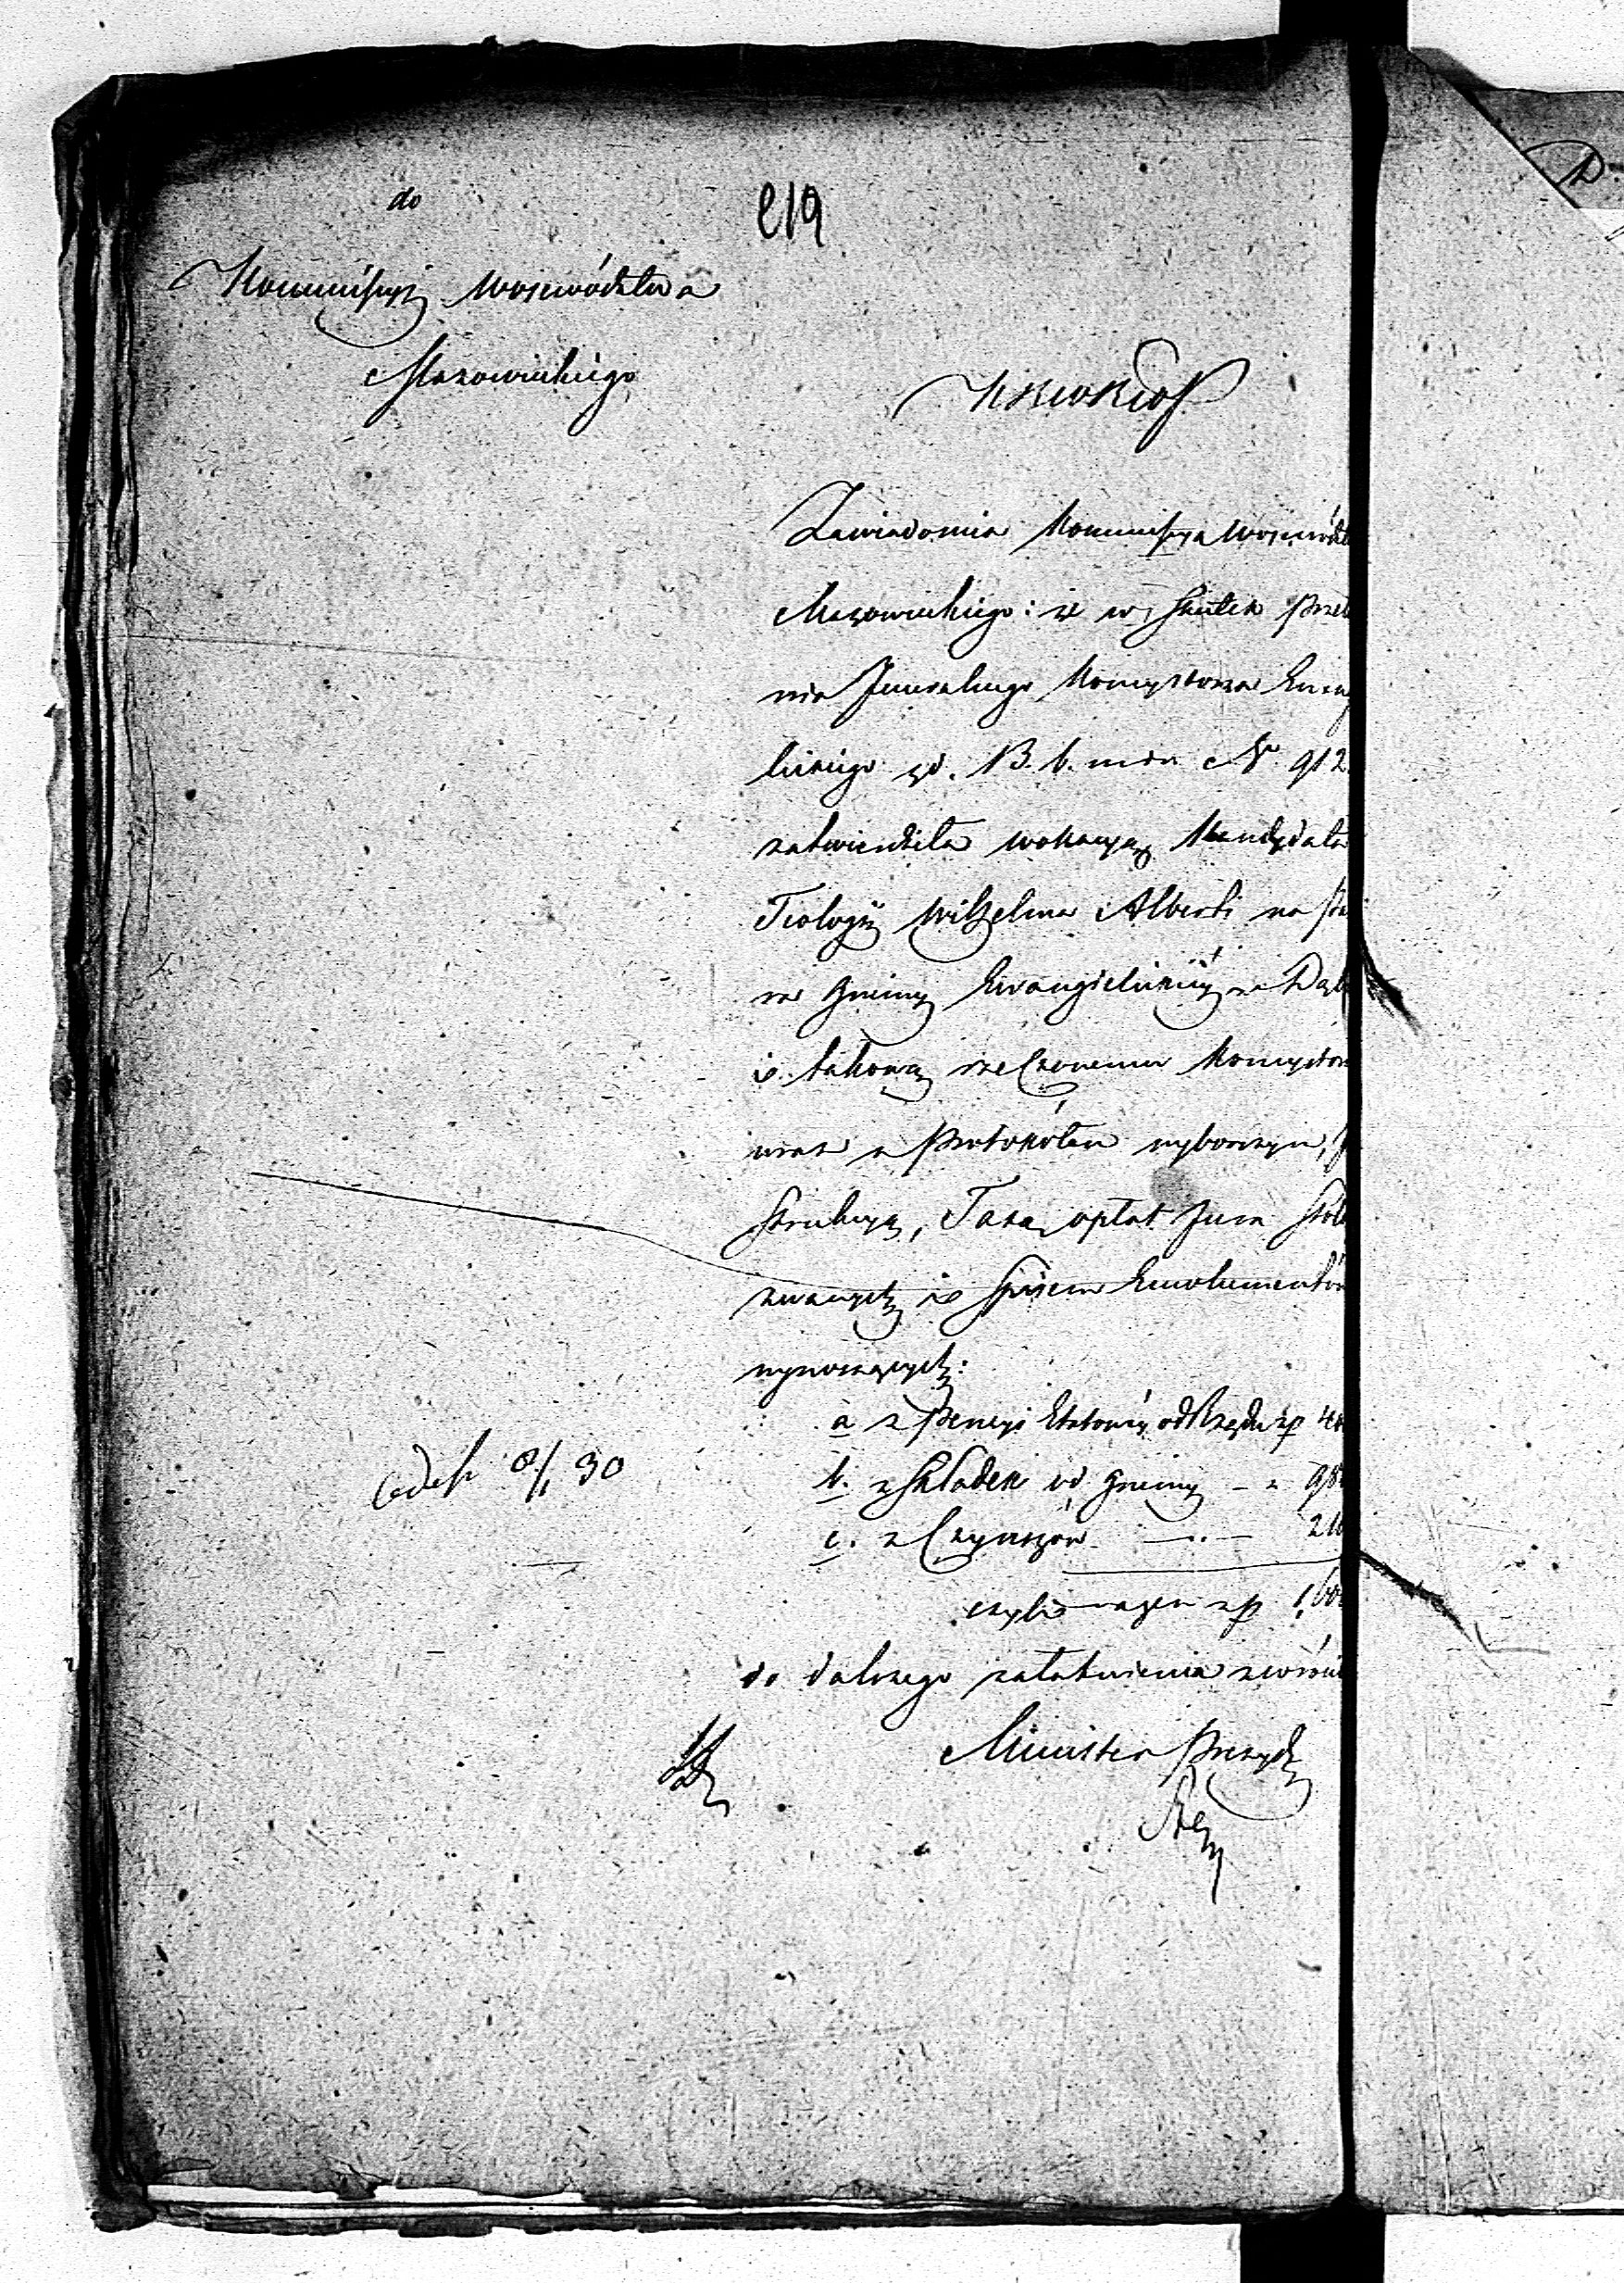 do
219
Kommissyi Województwa
Mazowieckiego
KRWRiOP
Zawiadomia Kommissya Wojewódz
Mazowieckiego: że w skutek Przed
nia Jeneralnego Konsystorza Ewan
lickiego z d. 13 b. m. i r. No 912
zatwierdziła wokacyą Kandydata
Teologii Wilhelma Alberti na Pas
ra Gminy Ewangielickiej w Dąb
i takową rzeczonemu Konsystor
wraz z Protokółem wyborczym,
strukcyą, Taxą opłat Jura Stolæ
zwanych i Spisem Emolumentów
wynoszących:
a z Pensyi Etatowéj od Rządu zp 40
b. z Składek od Gminy - " 98
c. z Czynszów - " - 21
czyli razem zp 1,60
do dalszego załatwienia zwróci
Minister Prezyd
exp 8/1 30